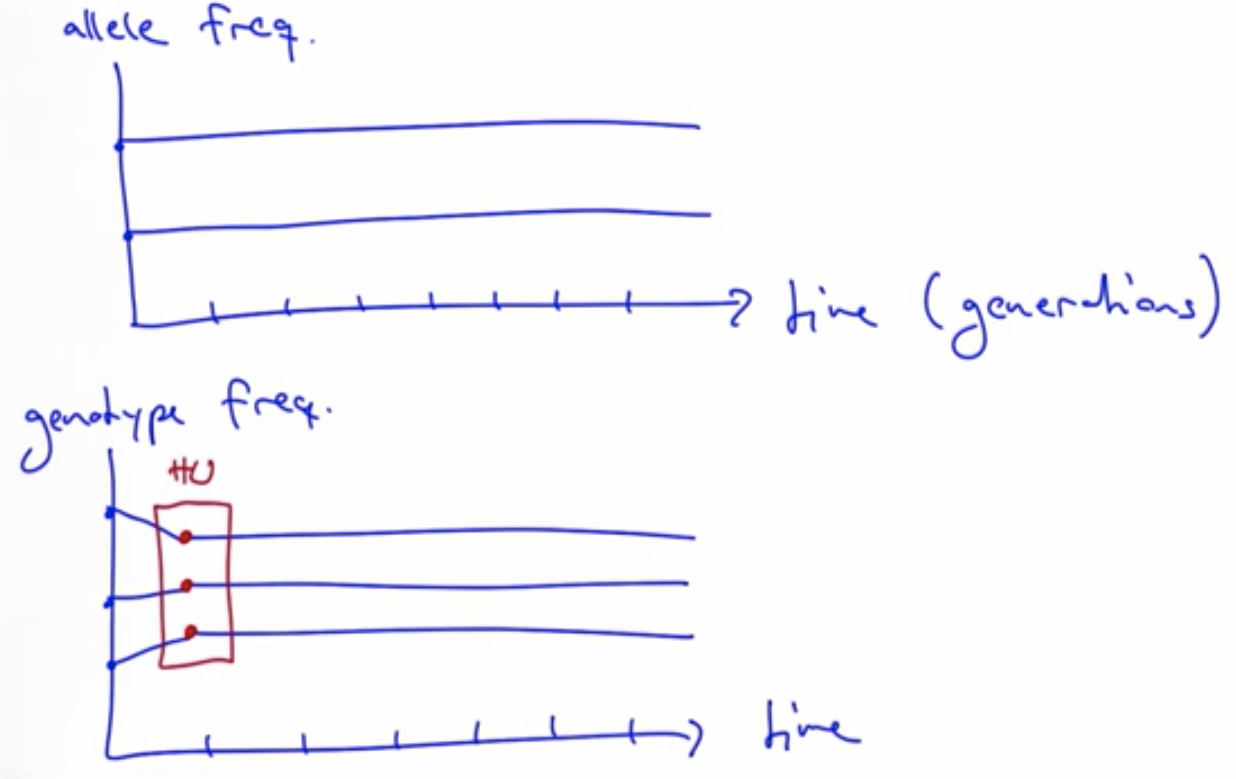 allele freq.
time (generations)
genotype freq.
HW
time